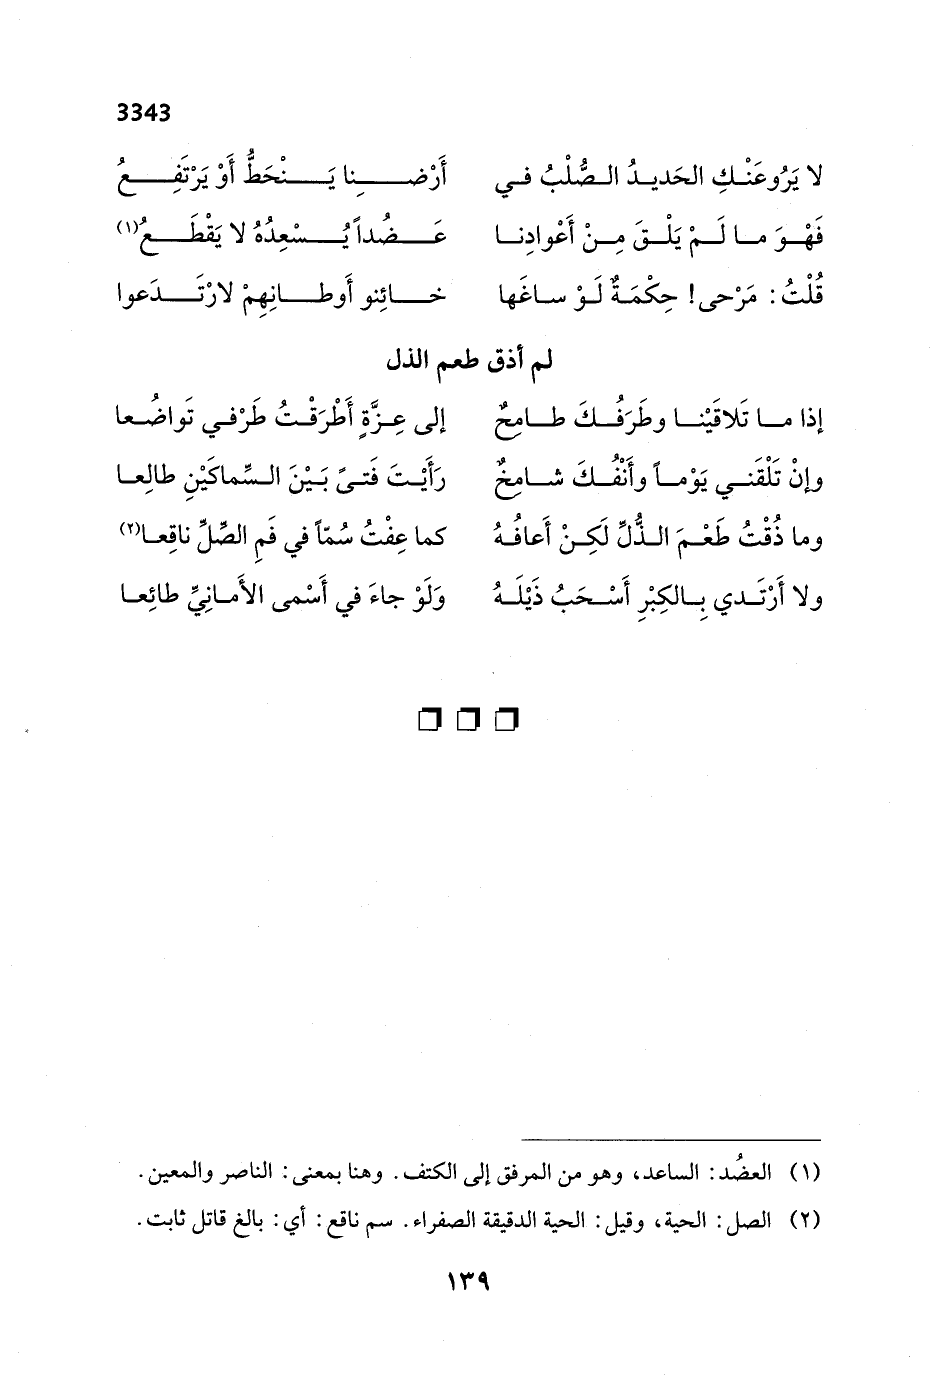 3343
لا يَرُوعَنْكِ الحَديدُ الصُّلْبُ في أَرْضِنا يَنْحَطُّ أَوْ يَرْتَفِعُ
فَهْوَ ما لَمْ يَلْقَ مِنْ أَعْوادِنا عَضُداً يُسْعِدُهُ لا يَقْطَعُ(١)
قُلْتُ: مَرْحى! حِكْمَةٌ لَوْ ساغَها خائِنو أَوطانِهِمْ لارْتَدَعوا
لم أذق طعم الذل
إذا ما تَلاقَيْنا وطَرَفُكَ طامِحٌ إلى عِزَّةٍ أَطْرَقْتُ طَرْفي تَواضُعا
وإنْ تَلْقَني يَوْماً وأَنْفُكَ شامِخٌ رَأَيْتَ فَتىً بَيْنَ السِّماكَيْنِ طالِعا
وما ذُقْتُ طَعْمَ الذُّلِّ لَكِنْ أَعافُهُ كما عِفْتُ سُمّاً في فَمِ الصِّلِّ ناقِعا(٢)
ولا أَرْتَدي بِالكِبْرِ أَسْحَبُ ذَيْلَهُ وَلَوْ جاءَ في أَسْمى الأَمانِيِّ طائِعا
(١) العضُد: الساعد، وهو من المرفق إلى الكتف. وهنا بمعنى: الناصر والمعين.
(٢) الصل: الحية، وقيل: الحية الدقيقة الصفراء. سم ناقع: أي: بالغ قاتل ثابت.
١٣٩